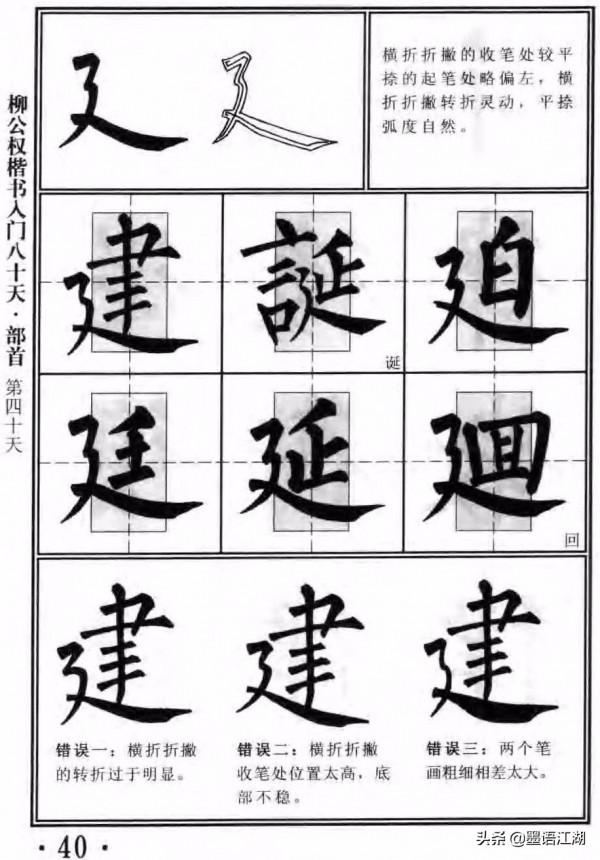 柳公权楷书入门八十天·部首 第四十天
廴
横折折撇的收笔处较平
捺的起笔处略偏左，横
折折撇转折灵动，平捺
弧度自然。
建 誕 廹
诞
廷 延 廻
回
建 建 建
错误一：横折折撇
的转折过于明显。
错误二：横折折撇
收笔处位置太高，底
部不稳。
错误三：两个笔
画粗细相差太大。
·40·
头条@墨语江湖